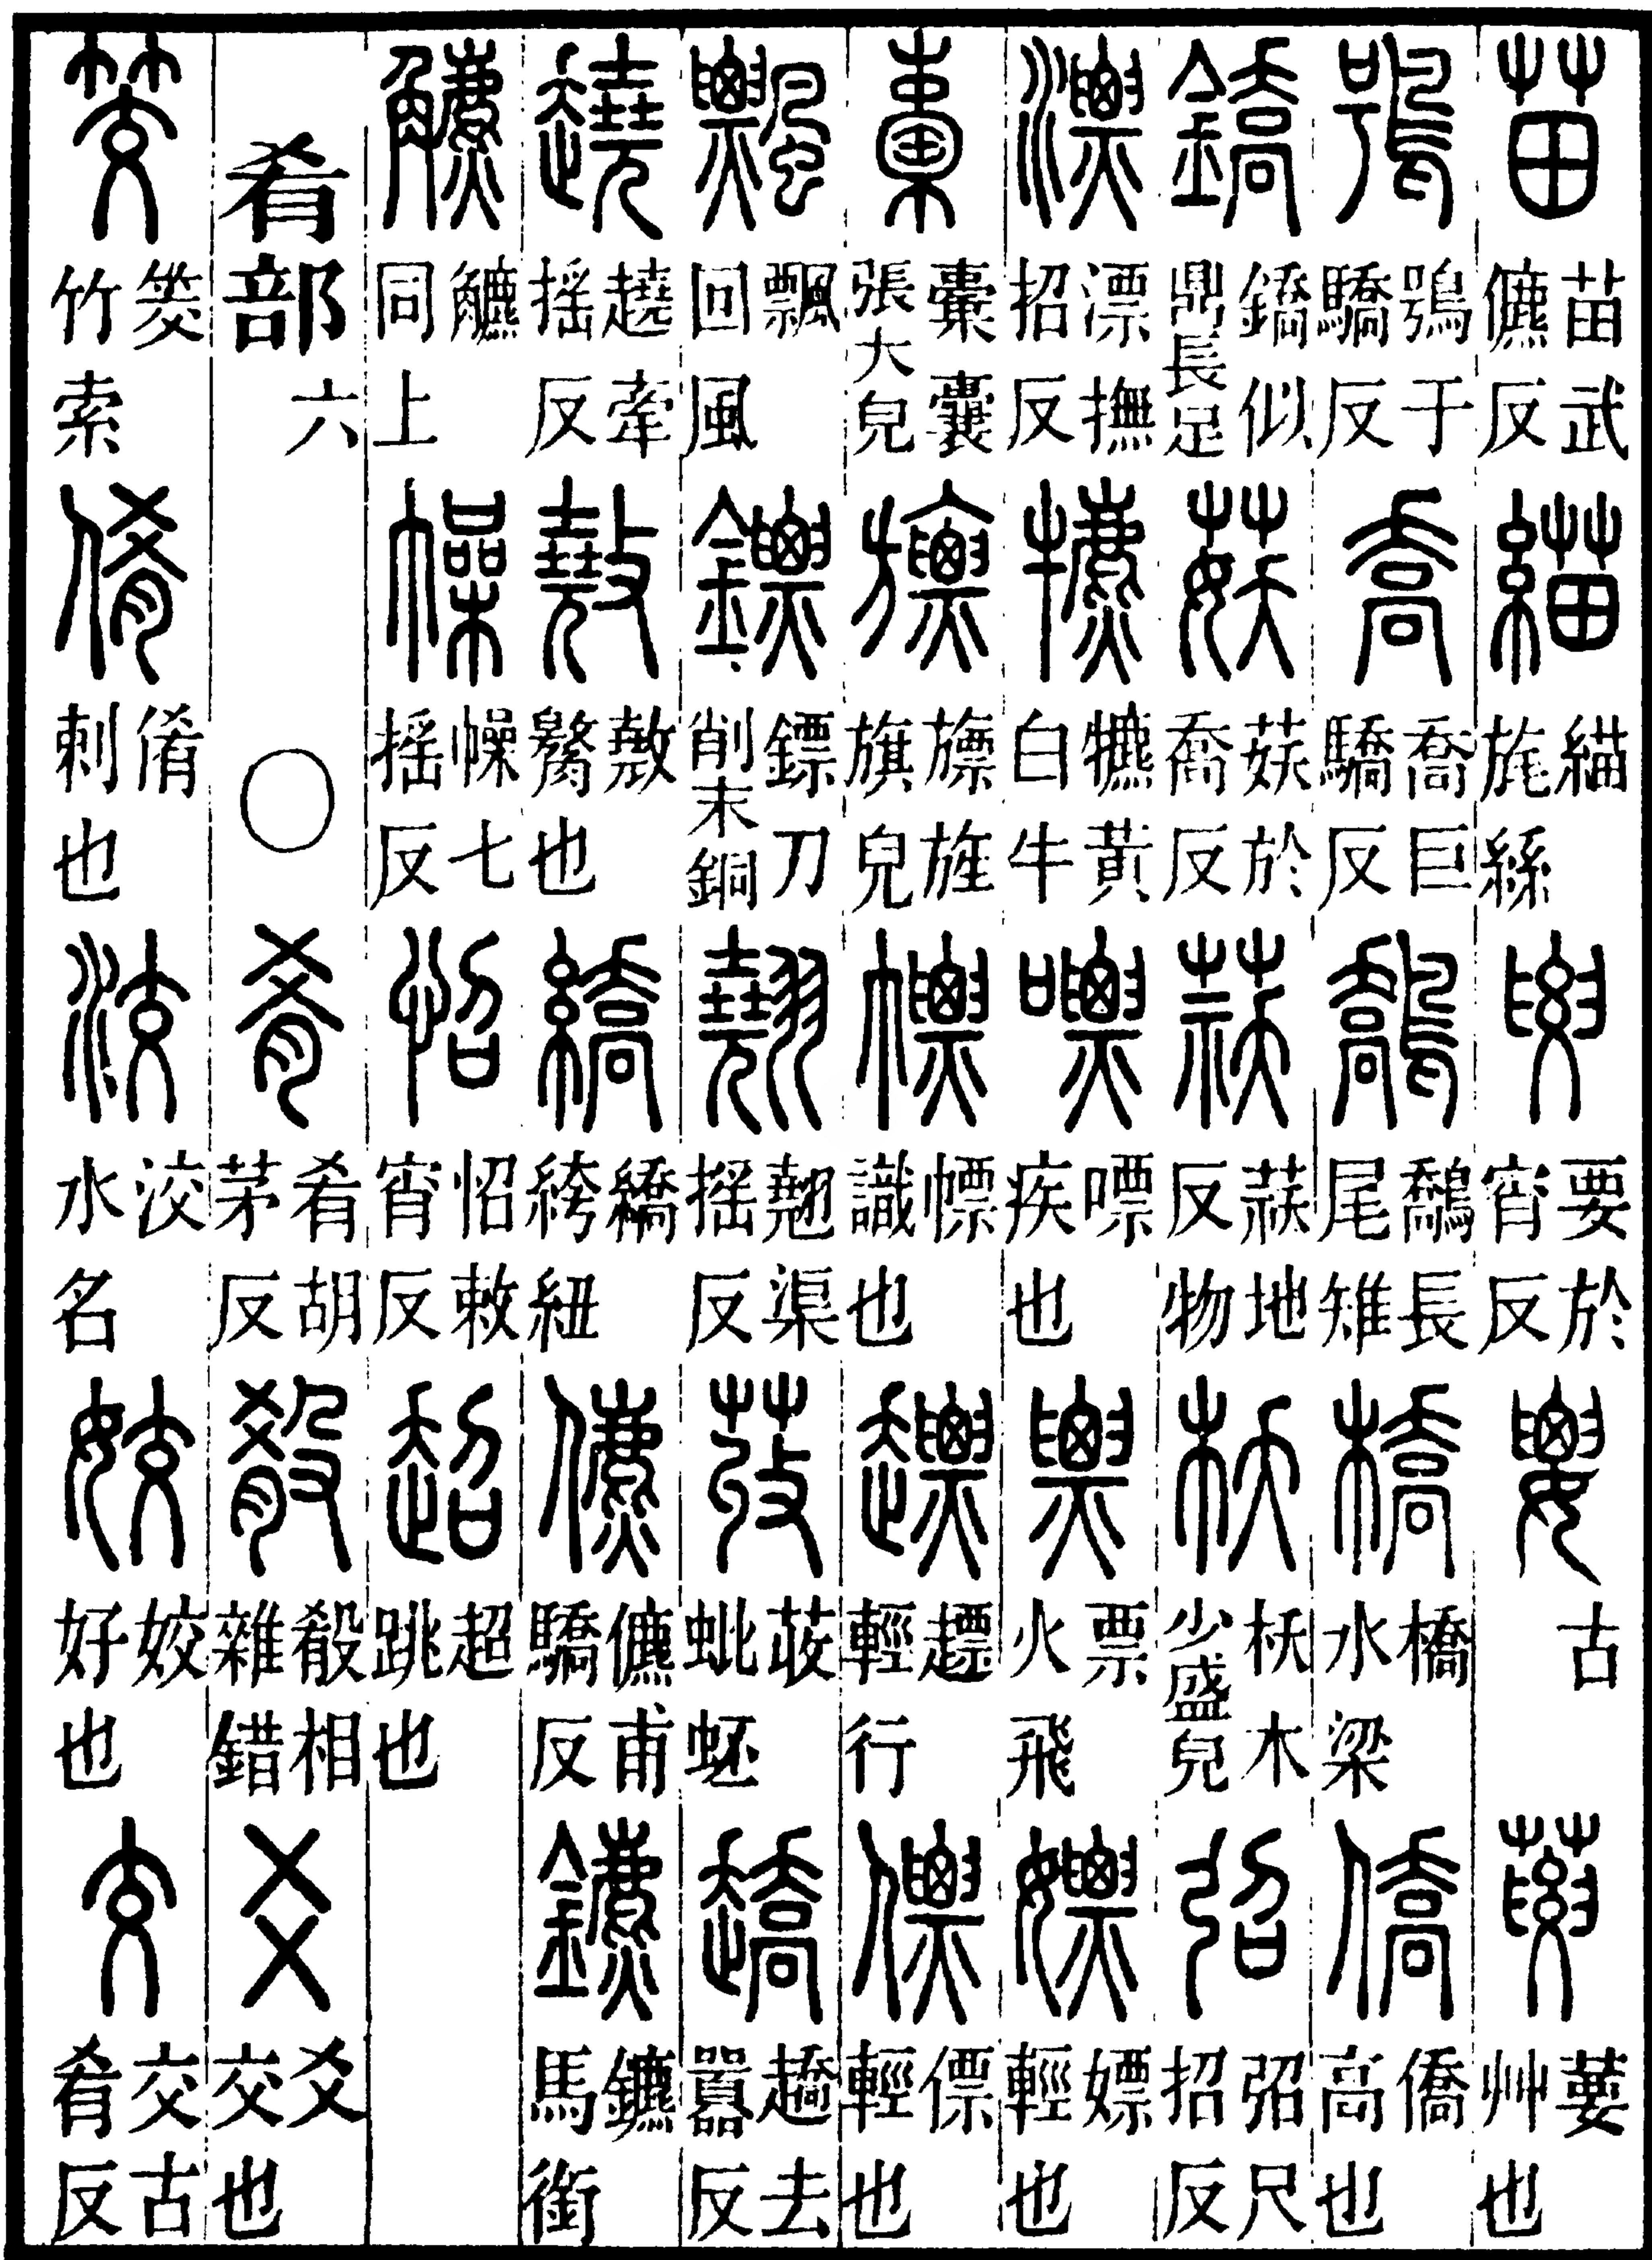 苗苗武儦反緢緢旄絲要要於宵反𡢗古葽葽艸也
鴞鴞于驕反喬喬巨驕反鷮鷮長尾雉橋橋水梁僑僑高也
鐈鐈似鼎長足𡝩𡝩於喬反䄏䄏地反物枖枖木少盛皃弨弨尺招反
漂漂撫招反犥犥黃白牛嘌嘌疾也票票火飛嫖嫖輕也
㯱㯱囊張大皃旚旚旌旗皃幖幖識也𧽤𧽤輕行僄僄輕也
飄飄回風鏢鏢刀削末銅翹翹渠搖反荍荍蚍趫趫去嚻反
趬趬牽搖反也繑繑絝紐儦儦甫驕反鑣鑣馬銜
同上幧幧七搖反怊怊敕宵反超超跳也
肴部 六 ○ 肴肴胡茅反殽殽相雜錯爻爻交也
筊筊竹索倄倄刺也洨洨水名姣姣好也交交古肴反